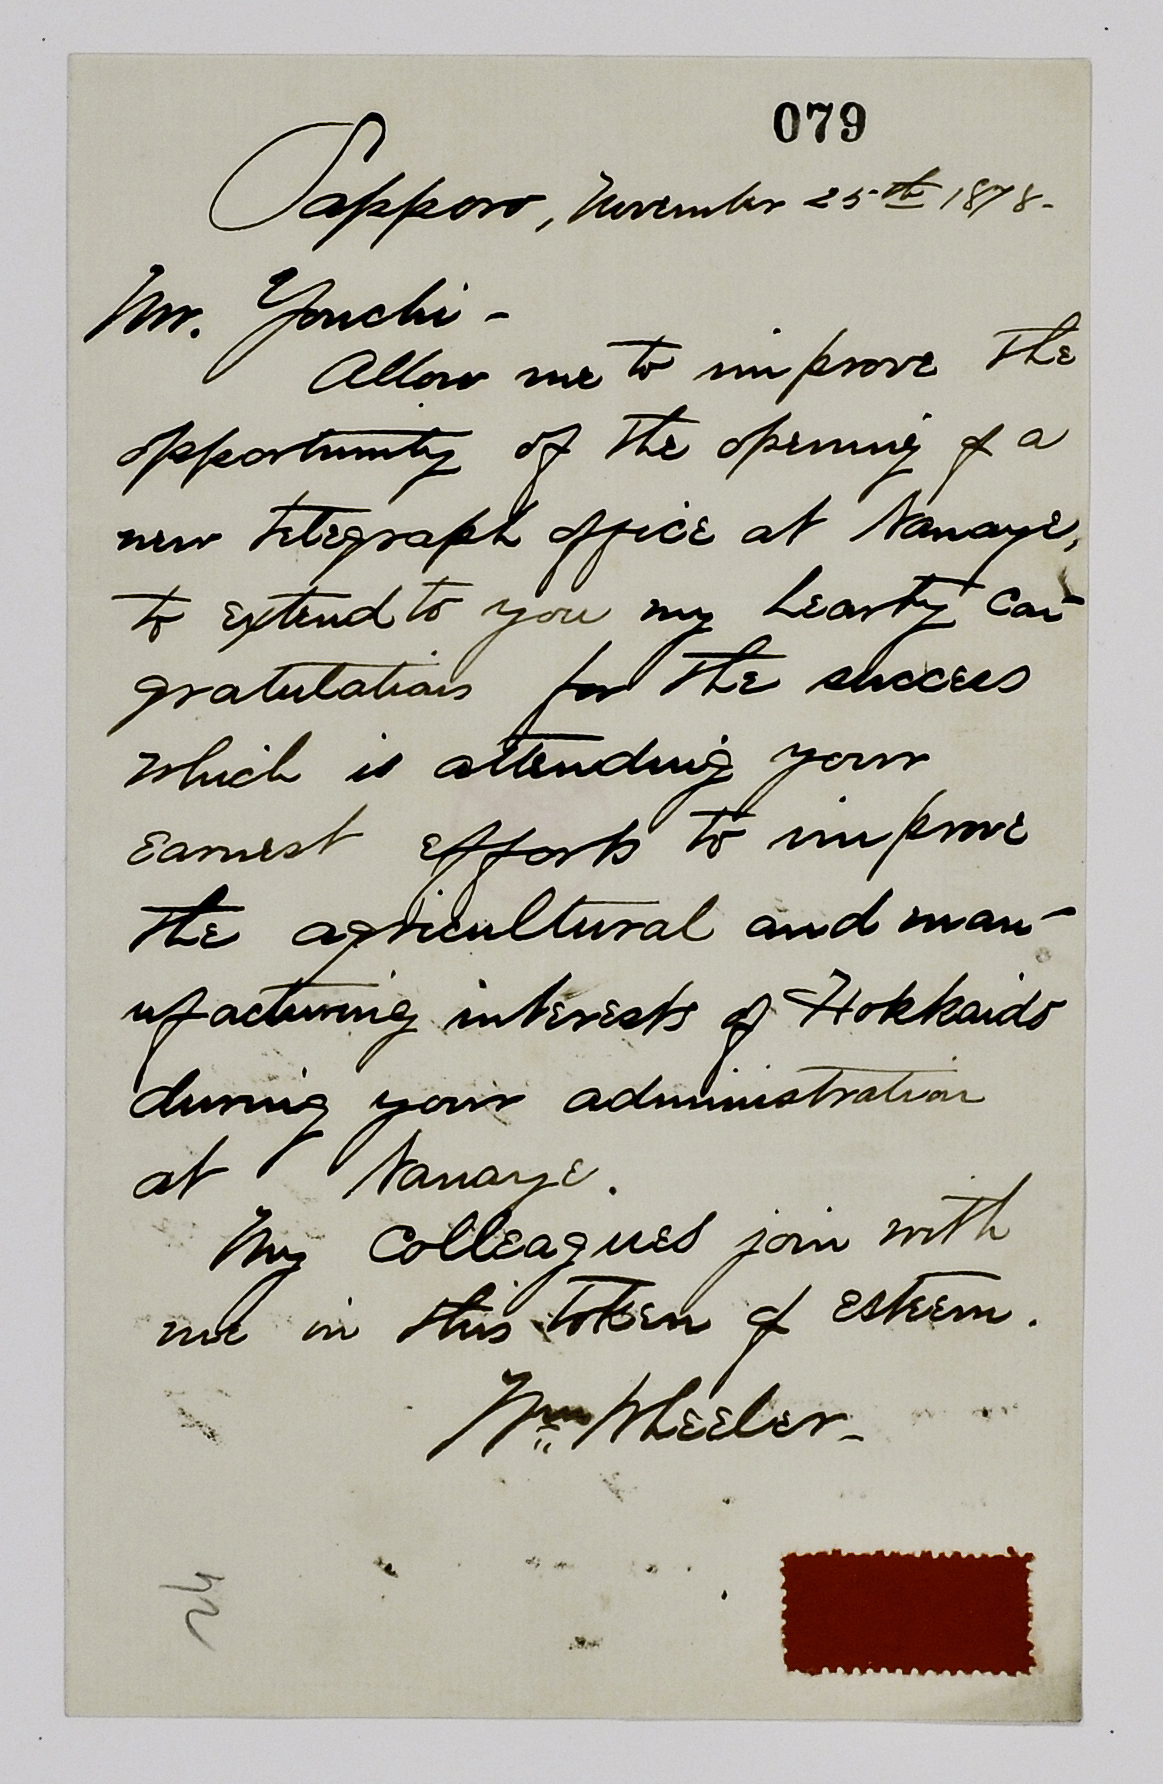 079
Sapporo, November 25th 1878-
Mr. Youchi -
Allow me to improve the
opportunity of the opening of a
new telegraph office at Nanaye,
to extend to you my hearty con-
gratulations for the success
which is attending your
earnest efforts to improve
the agricultural and man-
ufacturing interests of Hokkaido
during your administration
at Nanaye.
My colleagues join with
me in this token of esteem.
Wm Wheeler-